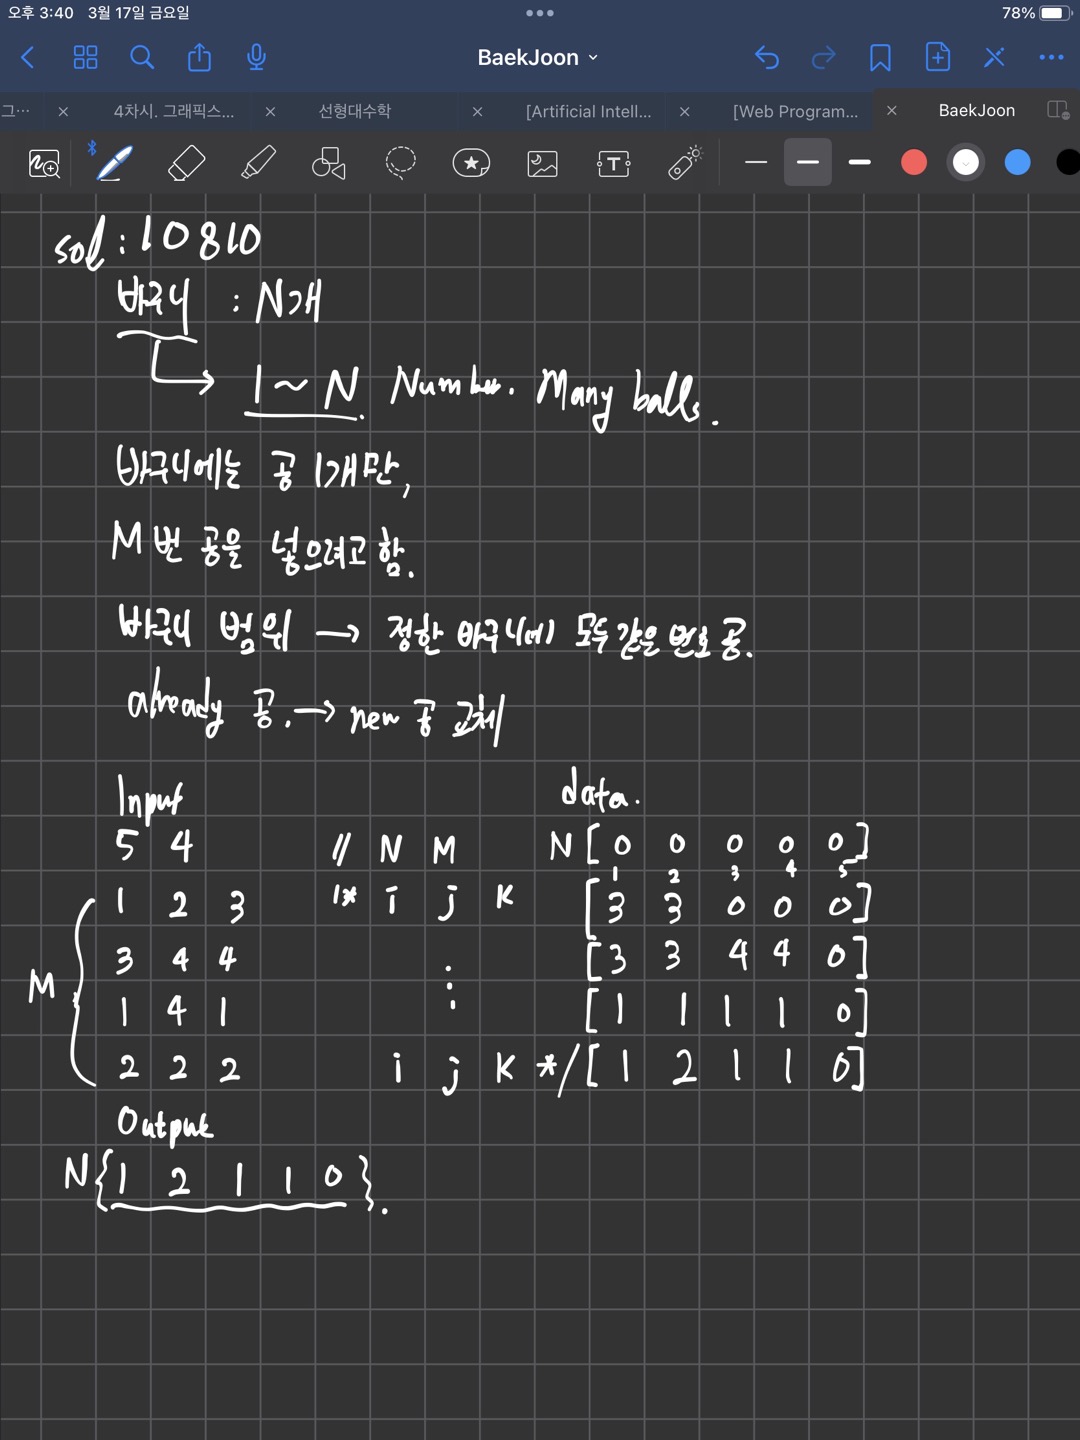 오후 3:40 3월 17일 금요일 78%
BaekJoon
그… 4차시. 그래픽스… 선형대수학 [Artificial Intell… [Web Program… BaekJoon
sol : 10810
바구니 : N개
1 ~ N Number. Many balls.
바구니에는 공 1개만,
M번 공을 넣으려고 함.
바구니 범위 → 정한 바구니에 모두 같은 번호 공.
already 공. → new 공 교체
Input data.
5 4 // N M N [ 0 0 0 0 0 ]
1 2 3 4 5
1 2 3 /* i j K [ 3 3 0 0 0 ]
3 4 4 [ 3 3 4 4 0 ]
M
1 4 1 [ 1 1 1 1 0 ]
2 2 2 i j K */ [ 1 2 1 1 0 ]
Output
N { 1 2 1 1 0 }.